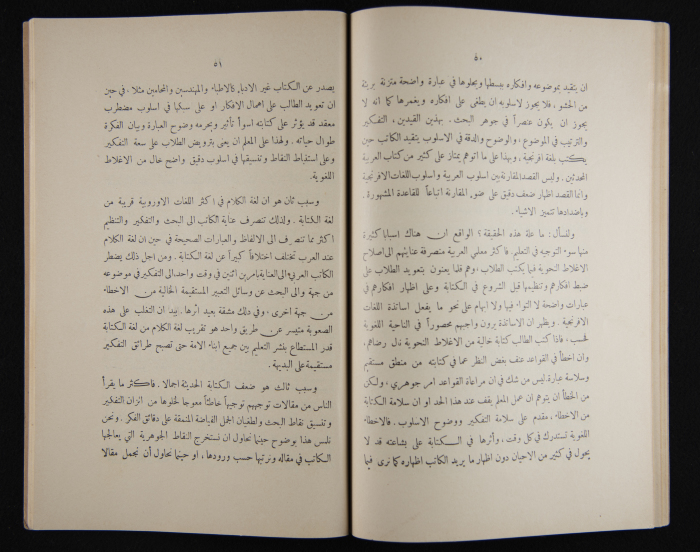 ٥٠
ان يتقيد بموضوعه وافكاره يبسطها ويجلوها في عبارة واضحة متزنة بريئة
من الحشو . فلا يجوز لاسلوبه ان يطغى على افكاره ويغمرها كما انه لا
يجوز ان يكون عنصراً في جوهر البحث . بهذين القيدين ، التفكير
والترتيب في الموضوع ، والوضوح والدقة في الاسلوب يتقيد الكاتب حين
يكتب بلغة افرنجية . وبهذا على ما اتوهم يمتاز على كثير من كتاب العربية
المحدثين . وليس القصد المقارنة بين اسلوب العربية واسلوب اللغات الافرنجية
وانما القصد اظهار ضعف دقيق على ضوء المقارنة اتباعاً للقاعدة المشهورة .
وباضدادها تتميز الاشياء .
ولنسأل : ما علة هذه الحقيقة ؟ الواقع ان هناك اسباباً كثيرة
منها سوء التوجيه في التعليم . فاكثر معلمي العربية منصرفة عنايتهم الى اصلاح
الاغلاط النحوية فيما يكتب الطلاب ، وهم قلما يعنون بتعويد الطلاب على
ضبط افكارهم وتنظيمها قبل الشروع في الكتابة وعلى اظهار افكارهم في
عبارات واضحة لا التواء فيها ولا ابهام على نحو ما يفعل اساتذة اللغات
الافرنجية . ويظهر ان الاساتذة يرون واجبهم محصوراً في الناحية اللغوية
فحسب ، فاذا كتب الطالب كتابة خالية من الاغلاط النحوية نال رضاهم ،
وان اخطأ في القواعد عنف بغض النظر عما في كتابته من منطق مستقيم
وسلاسة عبارة. ليس من شك في ان مراعاة القواعد امر جوهري ، ولكن
من الخطأ ان يتوهم ان عمل المعلم يقف عند هذا الحد او ان سلامة الكتابة
من الاخطاء ، مقدم على سلامة التفكير ووضوح الاسلوب . فالاخطاء
اللغوية تستدرك في كل وقت ، وأثرها في الكتابة على بشاعته قد لا
يحول في كثير من الاحيان دون اظهار ما يريد الكاتب اظهاره كما نرى فيما
٥١
يصدر عن الكتاب غير الادباء كالاطباء والمهندسين والمحامين مثلا ، في حين
ان تعويد الطالب على اهمال الافكار او على سبكها في اسلوب مضطرب
معقد قد يؤثر على كتابته اسوأ تأثير ويحرمه وضوح العبارة وبيان الفكرة
طوال حياته . ولهذا على المعلم ان يعنى بترويض الطلاب على سعة التفكير
وعلى استنباط النقاط وتنسيقها في اسلوب دقيق واضح خال من الاغلاط
اللغوية .
وسبب ثان هو ان لغة الكلام في اكثر اللغات الاوروبية قريبة من
لغة الكتابة . ولذلك تنصرف عناية الكاتب الى البحث والتفكير والتنظيم
اكثر مما تنصرف الى الالفاظ والعبارات الصحيحة في حين ان لغة الكلام
عند العرب تختلف اختلافاً كبيراً عن لغة الكتابة . ومن اجل ذلك يضطر
الكاتب العربي الى العناية بامرين اثنين في وقت واحد الى التفكير في موضوعه
من جهة والى البحث عن وسائل التعبير المستقيمة الخالية من الاخطاء
من جهة اخرى ، وفي ذلك مشقة بعيد اثرها . بيد ان التغلب على هذه
الصعوبة متيسر عن طريق واحد هو تقريب لغة الكلام من لغة الكتابة
قدر المستطاع بنشر التعليم بين جميع ابناء الامة حتى تصبح طرائق التفكير
مستقيمة على البديهة .
وسبب ثالث هو ضعف الكتابة الحديثة اجمالا . فاكثر ما يقرأ
الناس من مقالات توجههم توجيهاً خاطئاً معوجاً لخلوها من اتزان التفكير
وتنسيق نقاط البحث ولطغيان الجمل الفياضة المنمقة على دقائق الفكر . ونحن
نلمس هذا بوضوح حينما نحاول ان نستخرج النقاط الجوهرية التي يعالجها
الكاتب في مقاله ونرتبها حسب ورودها ، او حينما نحاول أن نجمل مقالا